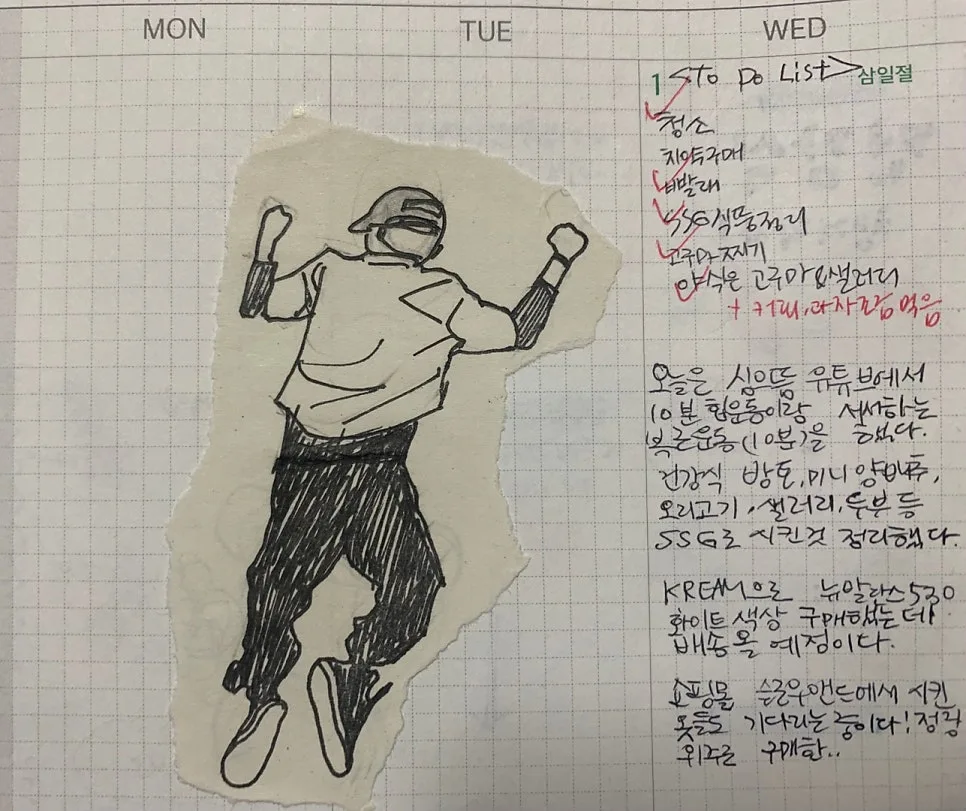 MON TUE WED
1 <To Do List> 삼일절
청소
치약구매
빨래
SSG 식품정리
고구마 찌기
야식은 고구마&샐러리
+ 커피,과자 먹음
오늘은 심으뜸 유튜브에서
10분 힙운동이랑 서서하는
복근운동(10분)을 했다.
건강식 방토,미니 양배추,
오리고기,샐러리,두부 등
SSG로 시킨것 정리했다.
KREAM으로 뉴발란스530
화이트 색상 구매했는데
배송 올 예정이다.
쇼핑몰 슬로우앤드에서 시킨
옷들도 기다리는 중이다! 청
위주로 구매한..